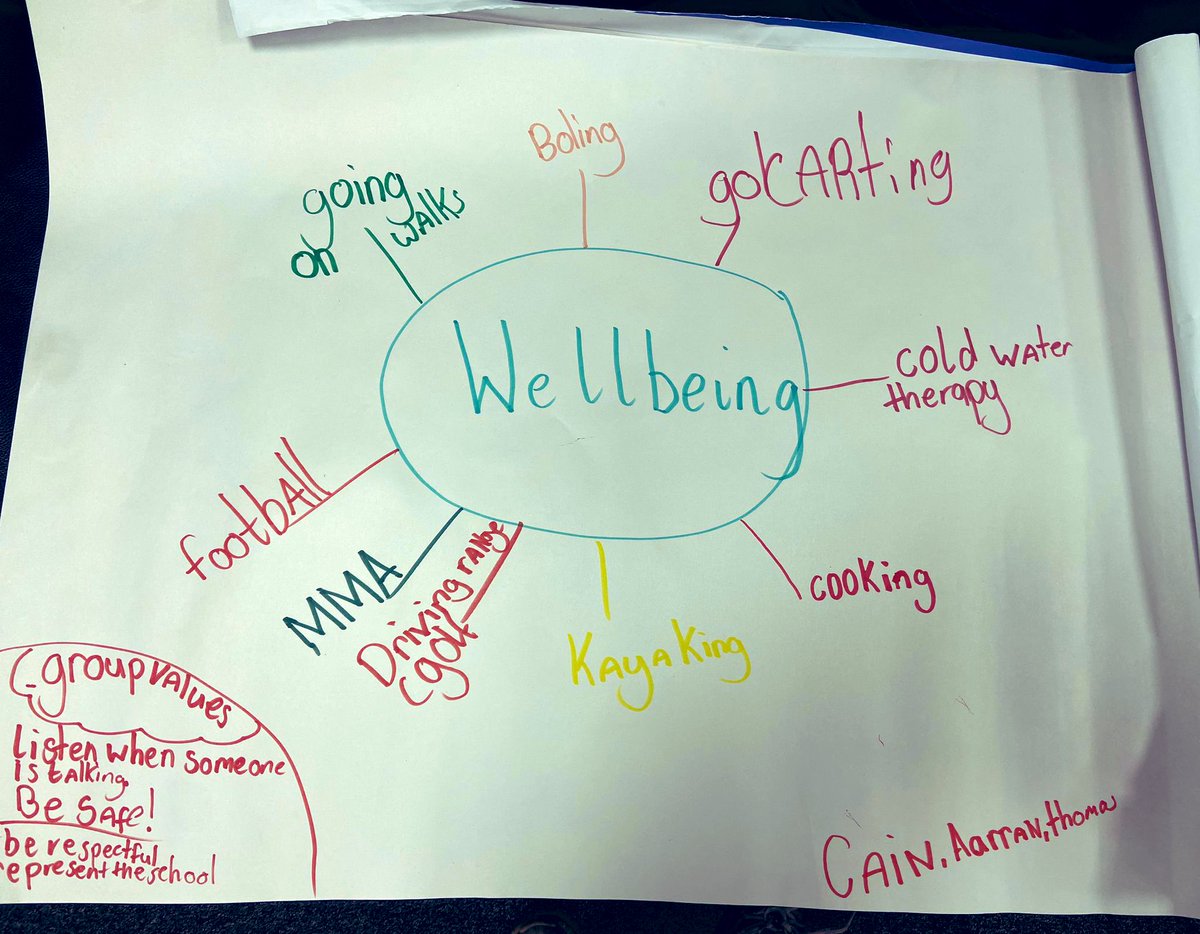 Boling
gokARting
going
on walks
Wellbeing
cold water
therapy
football
MMA
Driving range
(golf
Kayaking
cooking
group values
Listen when someone
is talking.
Be safe!
be respectful
represent the school
CAIN, Aarran, thomas